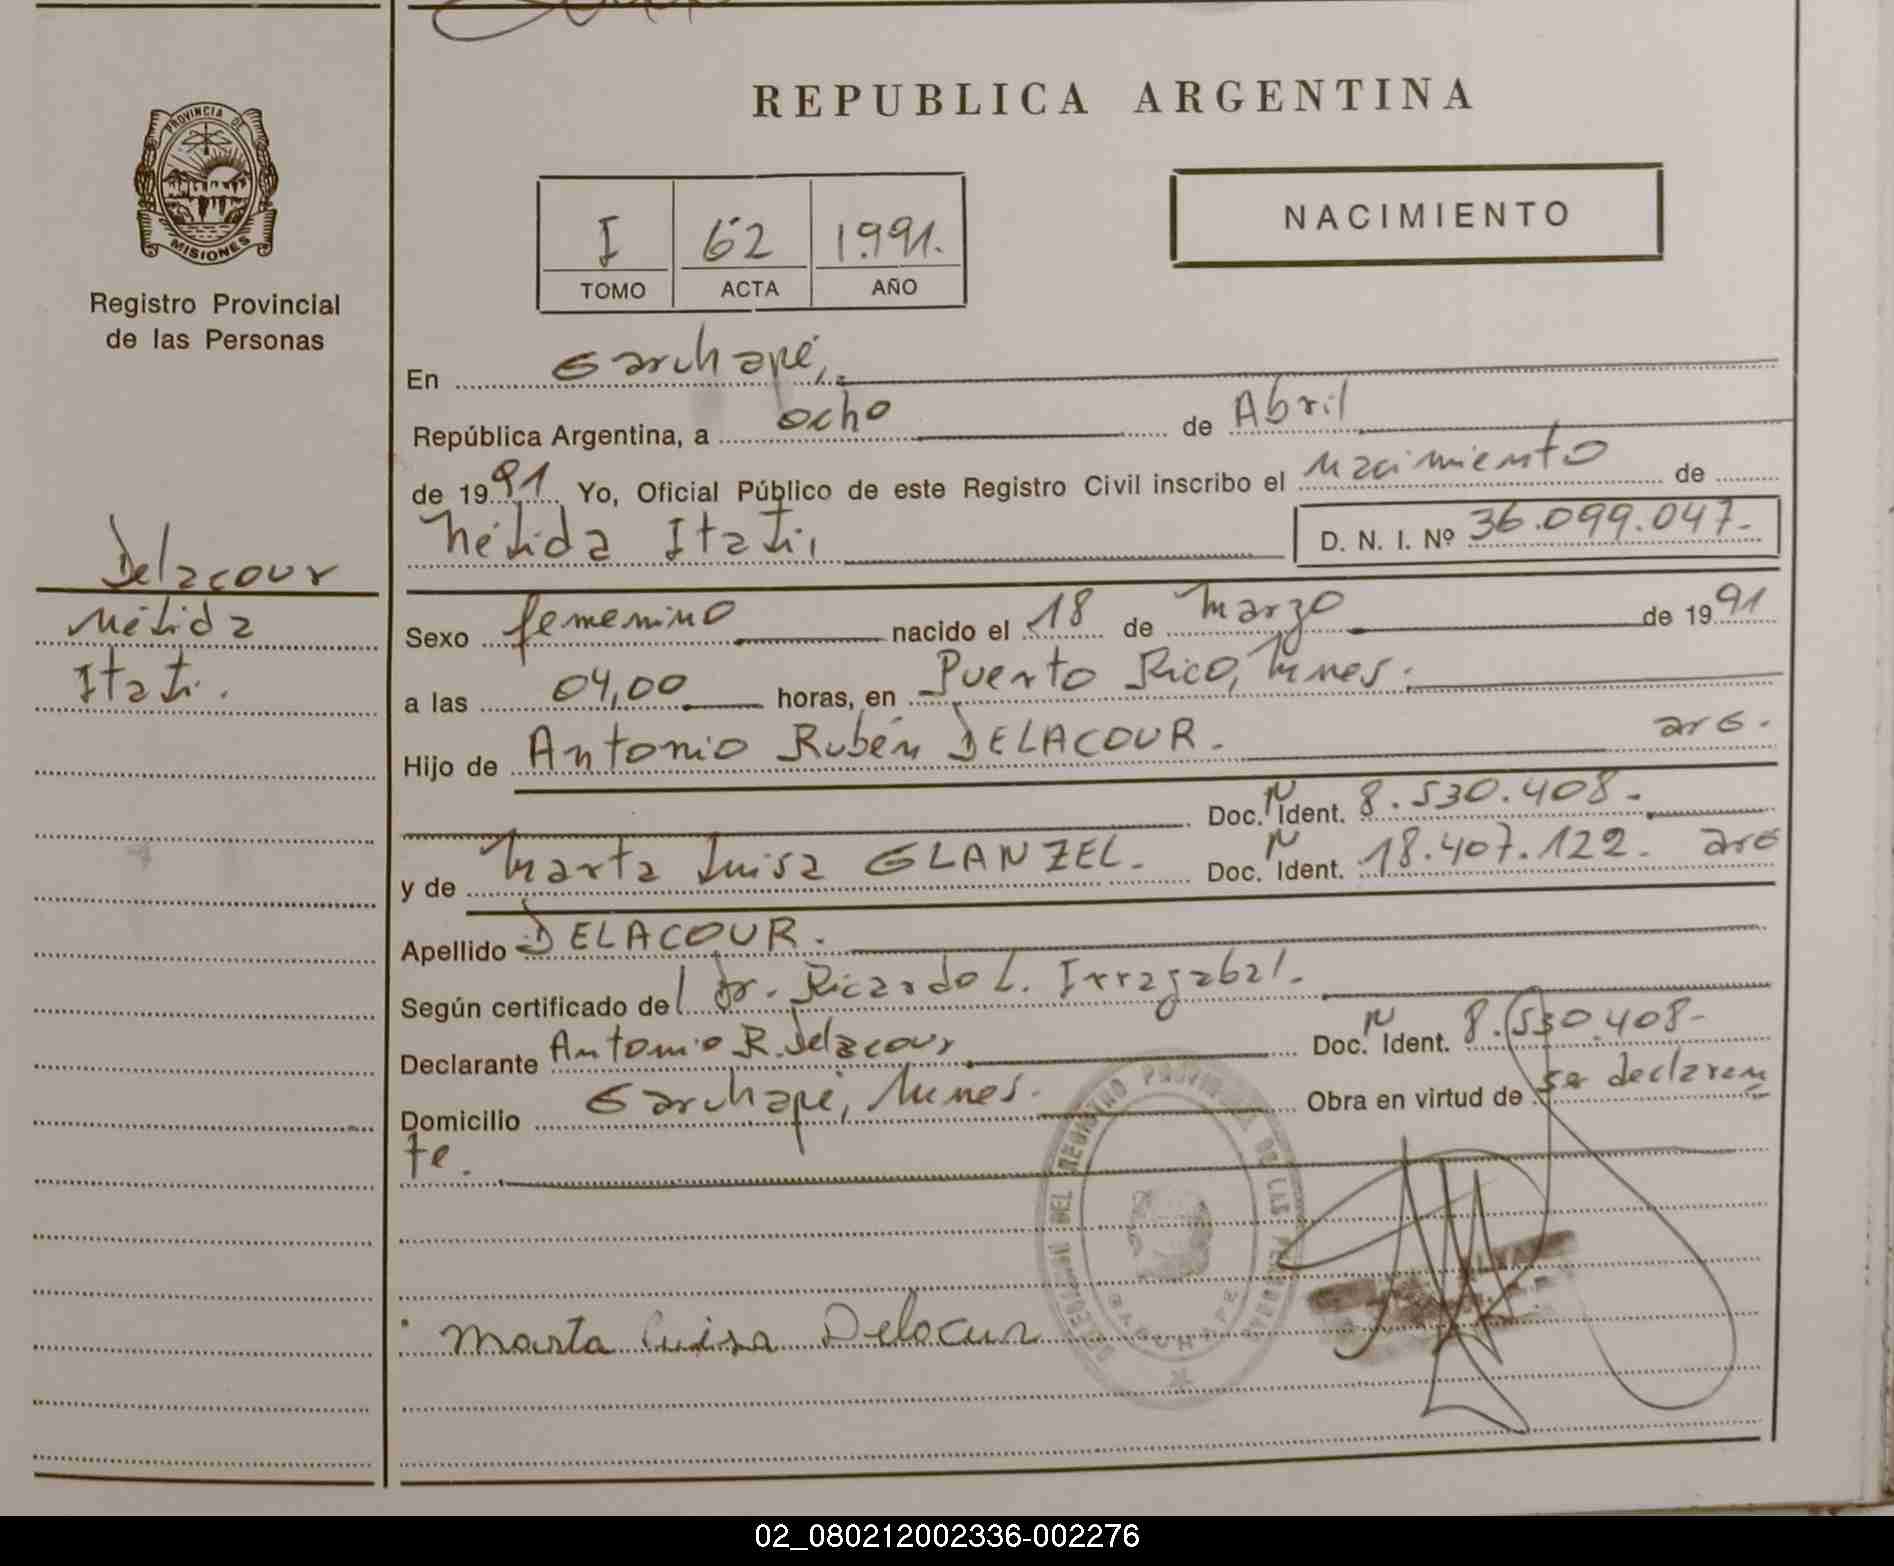 PROVINCIA DE
MISIONES
Registro Provincial
de las Personas
Delacour
Nélida
Itatí.
REPUBLICA ARGENTINA
I 62 1.991.
TOMO ACTA AÑO
NACIMIENTO
En Garuhapé,
República Argentina, a ocho de Abril
de 1991 Yo, Oficial Público de este Registro Civil inscribo el nacimiento de
Nélida Itatí, D. N. I. Nº 36.099.047.-
Sexo femenino nacido el 18 de Marzo de 1991
a las 04,00 horas, en Puerto Rico, Mnes.
Hijo de Antonio Rubén DELACOUR. arg.
Doc. N Ident. 8.530.408.-
y de Marta Luisa GLANZEL. Doc. N Ident. 18.407.122. arg
Apellido DELACOUR.
Según certificado del Dr. Ricardo L. Irrazabal.
Declarante Antonio R. Delacour Doc. N Ident. 8.530.408-
Domicilio Garuhapé, Mnes. Obra en virtud de ser declaran
te.
DEL REGISTRO PROVINCIAL DE LAS PERSONAS
GARUHAPE
Marta Luisa Delacur
02_080212002336-002276